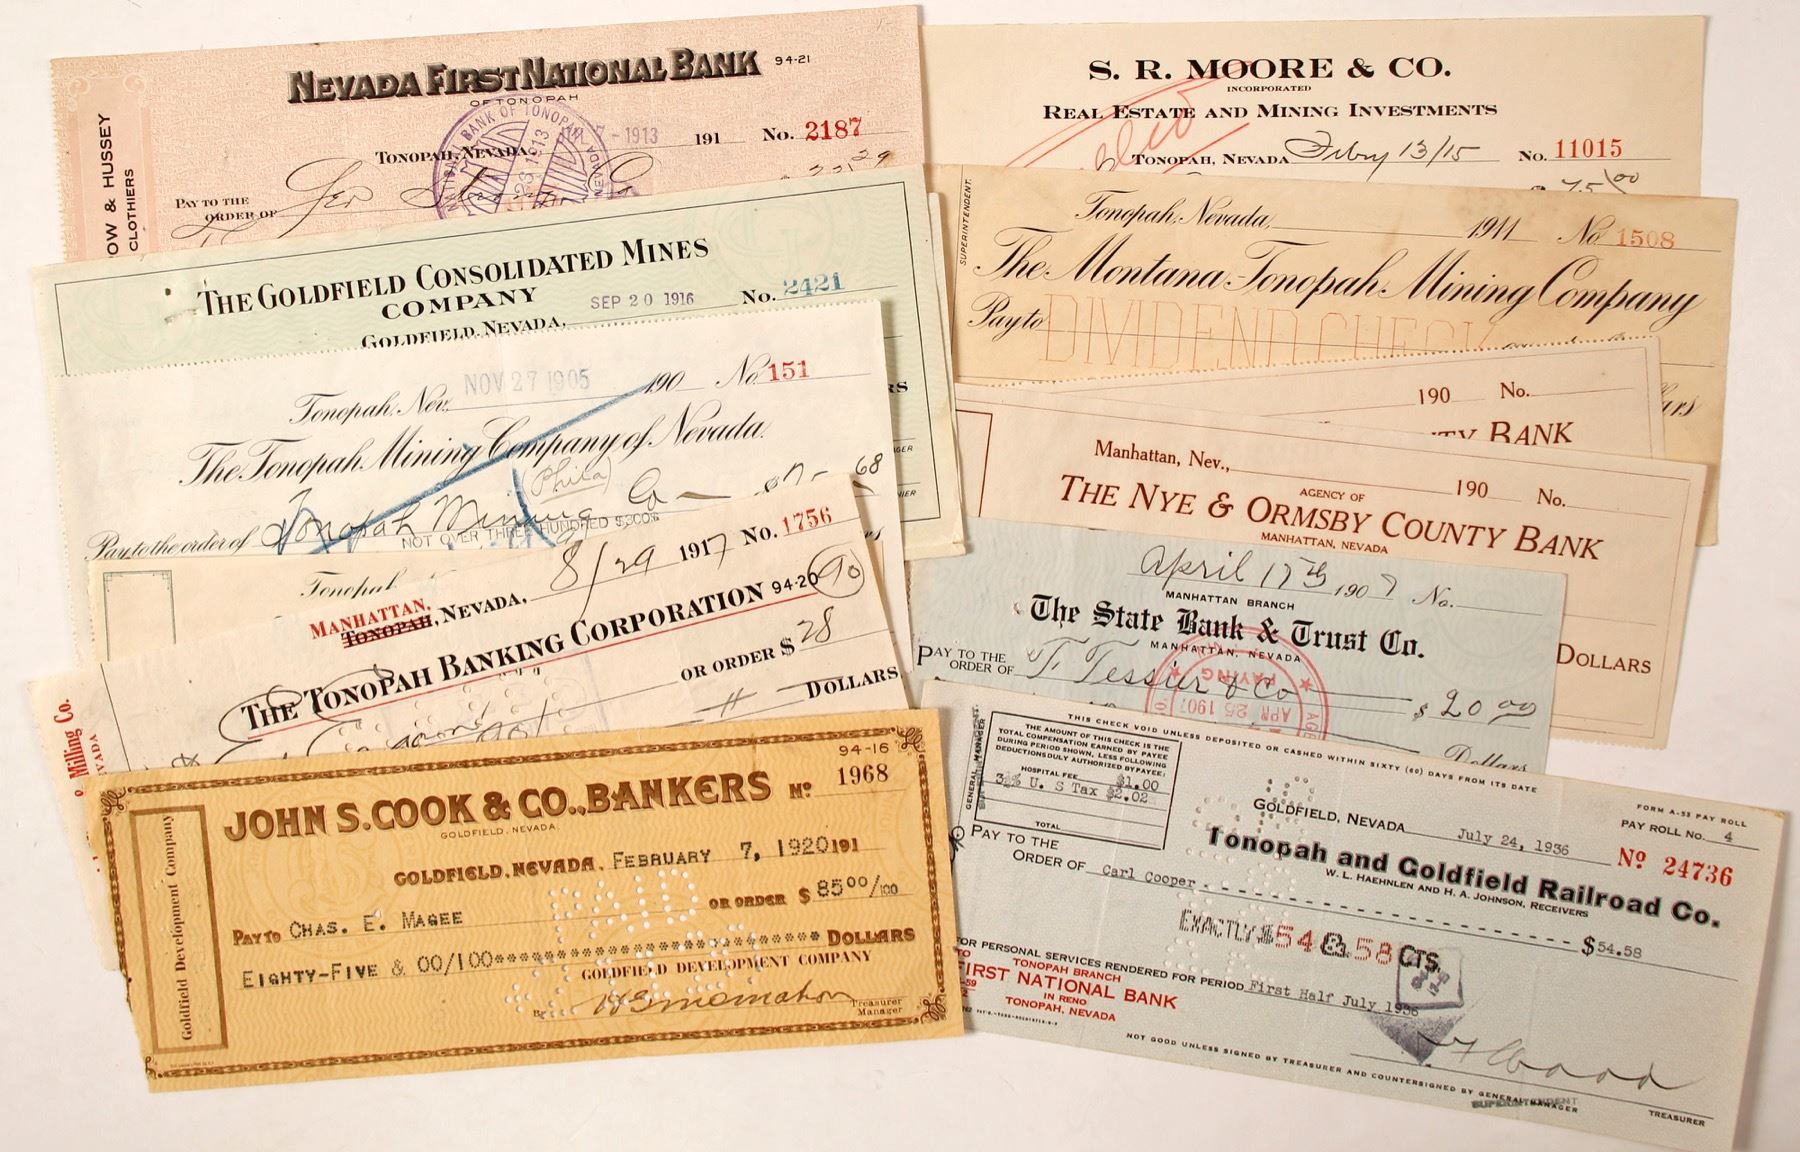 NEVADA FIRST NATIONAL BANK 94-21
OF TONOPAH
NATIONAL BANK OF TONOPAH
NEVADA
7-1913
191 No. 2187
TONOPAH, NEVADA
23 1913
PAY TO THE
ORDER OF
OW & HUSSEY
CLOTHIERS
S. R. MOORE & CO.
INCORPORATED
REAL ESTATE AND MINING INVESTMENTS
TONOPAH, NEVADA Feby 13/15 No. 11015
$ 75 00
THE GOLDFIELD CONSOLIDATED MINES
COMPANY SEP 20 1916 No. 2421
GOLDFIELD, NEVADA,
SUPERINTENDENT.
Tonopah, Nevada, 1911 No 1508
The Montana-Tonopah Mining Company
Pay to DIVIDEND CHECK
Tonopah, Nev. NOV 27 1905 190 No. 151
The Tonopah Mining Company of Nevada.
(Phila)
Pay to the order of Tonopah Mining Co 68
NOT OVER THREE HUNDRED $300$
190 No.
TY BANK
Manhattan, Nev., 190 No.
AGENCY OF
THE NYE & ORMSBY COUNTY BANK
MANHATTAN, NEVADA
DOLLARS
Tonopah
MANHATTAN,
TONOPAH, NEVADA, 8/29 1917 No. 1756
THE TONOPAH BANKING CORPORATION 94-20 90
OR ORDER $ 28
DOLLARS
April 17th 1907 No.
MANHATTAN BRANCH
The State Bank & Trust Co.
MANHATTAN, NEVADA
PAY TO THE
ORDER OF F Tessier & Co $ 20 00
PAYING
APR 25 1907
Dollars
Milling Co.
VADA
94-16
JOHN S. COOK & CO., BANKERS No 1968
GOLDFIELD, NEVADA.
GOLDFIELD, NEVADA, FEBRUARY 7, 1920 191
PAY TO CHAS. E. MAGEE OR ORDER $ 85 00/100
PAID
EIGHTY-FIVE & 00/100 DOLLARS
GOLDFIELD DEVELOPMENT COMPANY
By
Treasurer
Manager
Goldfield Development Company
THIS CHECK VOID UNLESS DEPOSITED OR CASHED WITHIN SIXTY (60) DAYS FROM ITS DATE
THE AMOUNT OF THIS CHECK IS THE
TOTAL COMPENSATION EARNED BY PAYEE
DURING PERIOD SHOWN, LESS FOLLOWING
DEDUCTIONS DULY AUTHORIZED BY PAYEE:
HOSPITAL FEE $1.00
U. S Tax $2.02
TOTAL
GENERAL MANAGER
FORM A-53 PAY ROLL
GOLDFIELD, NEVADA July 24, 1936 PAY ROLL No. 4
No 24736
Tonopah and Goldfield Railroad Co.
W. L. HAEHNLEN AND H. A. JOHNSON, RECEIVERS
PAY TO THE
ORDER OF Carl Cooper $54.58
EXACTLY $54 & 58 CTS
FOR PERSONAL SERVICES RENDERED FOR PERIOD First Half July 1936
TO TONOPAH BRANCH
FIRST NATIONAL BANK
IN RENO
TONOPAH, NEVADA
NOT GOOD UNLESS SIGNED BY TREASURER AND COUNTERSIGNED BY GENERAL MANAGER
SUPERINTENDENT
TREASURER